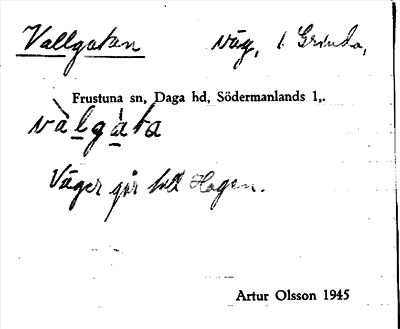 Vallgatan väg, i Grinda,
Frustuna sn, Daga hd, Södermanlands l,.
vàlgáta
Vägen går till Hagen.
Artur Olsson 1945